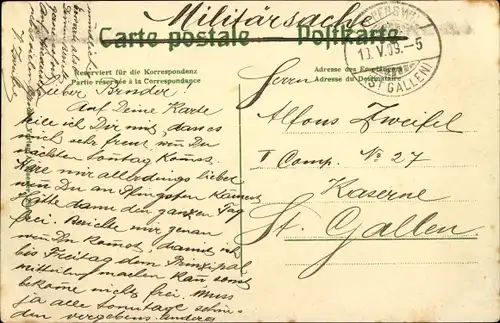 Militärsache
Carte postale. Postkarte.
Reserviert für die Korrespondenz
Partie réservée à la Correspondance
Adresse des Empfängers
Adresse du Destinataire
V.09.-5
(ST GALLEN)
Lieber Bruder!
Auf Deine Karte
teile ich Dir mit, dass es
mich sehr freut wenn Du
nächsten Sontag komst.
Wäre mir allerdings lieber
wen Du an Pfingsten kämest
Hätte dann den ganzen Tag
frei. Berichte mir genau
wen Du komst, damit ich
bis Freitag dem Prinzipal
mitteilung machen kan sonst
bekome nicht frei. Muss
ja alle Sonntage
den vergebens
Herrn
Alfons Zweifel
I Comp. No 27
Kaserne
St. Gallen